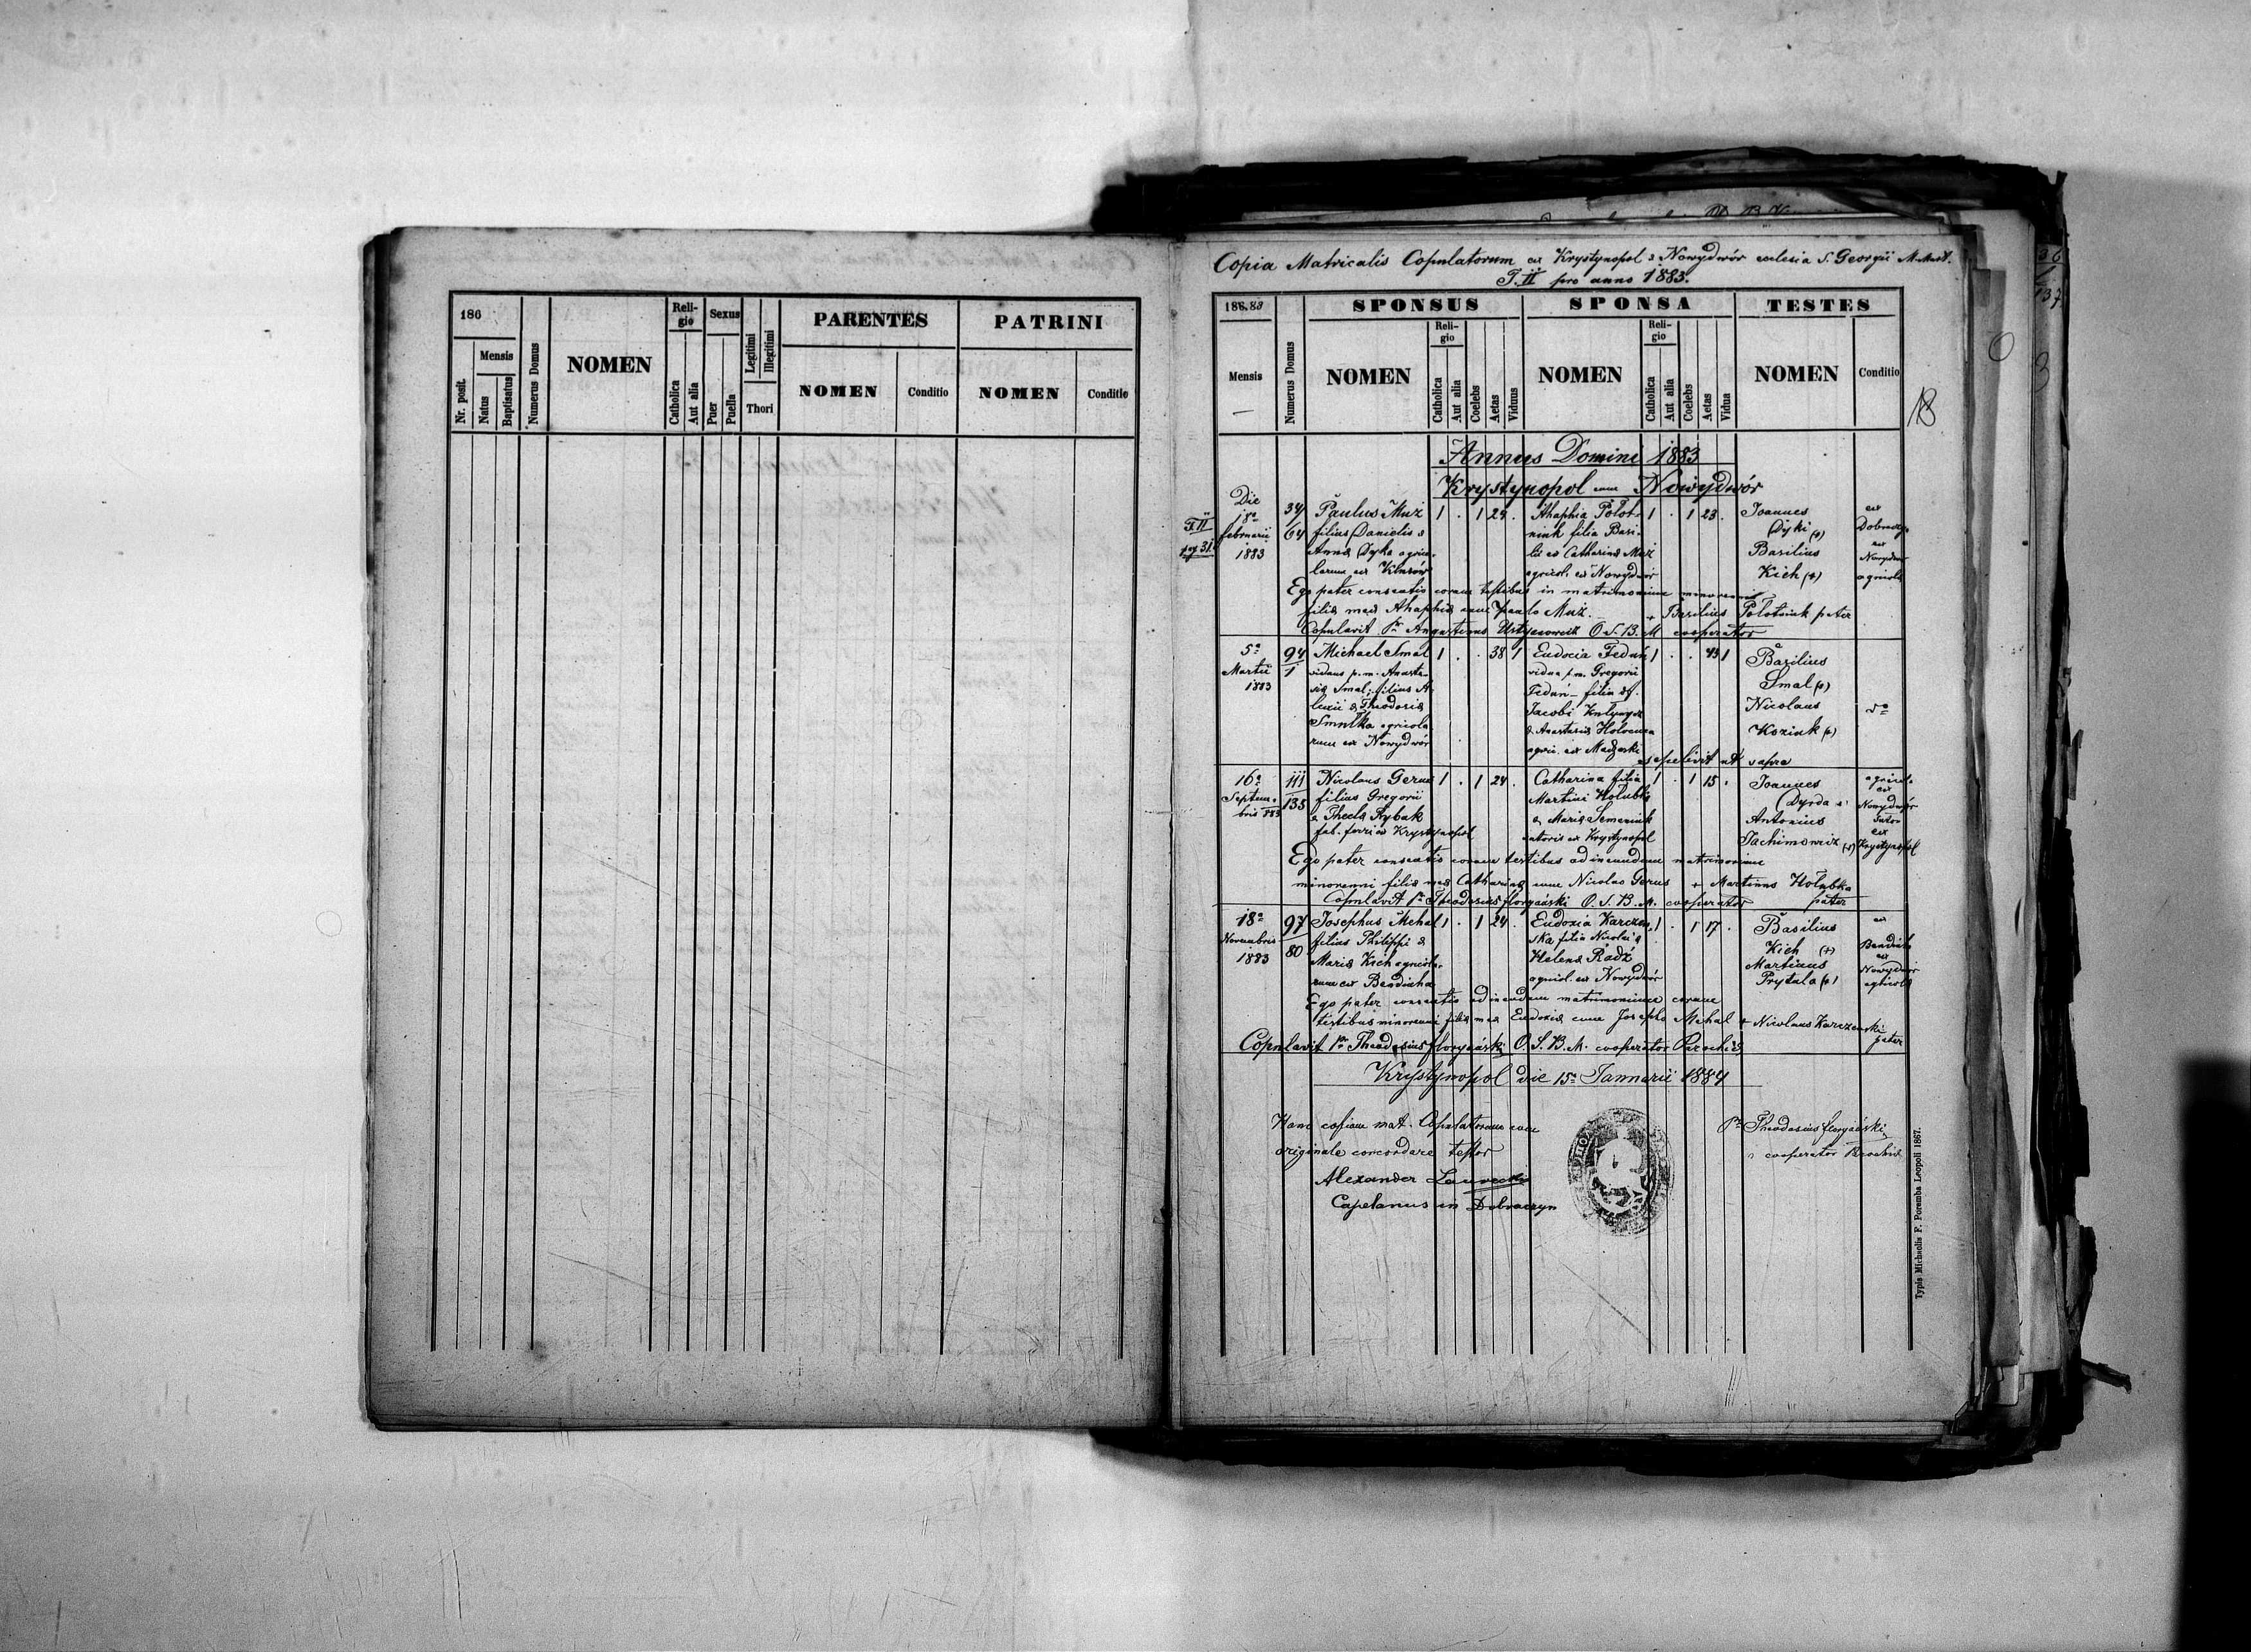 186
Nr. posit.
Mensis
Natus
Baptisatus
Numerus Domus
NOMEN
Religio
Catholica
Aut alia
Sexus
Puer
Puella
Legitimi
Illegitimi
Thori
PARENTES
NOMEN
Conditio
PATRINI
NOMEN
Conditio
Copia Matricalis Copulatorum ex Krystynopol & Nowydwór ecclesia S. Georgii M. Mart.
T. II pro anno 1883.
186.83
Mensis
Numerus Domus
SPONSUS
NOMEN
Religio
Catholica
Aut alia
Coelebs
Aetas
Viduus
SPONSA
NOMEN
Religio
Catholica
Aut alia
Coelebs
Aetas
Vidua
TESTES
NOMEN
Conditio
18
Annus Domini 1883
Krystynopol cum Nowydwór
T. II
pag 31.
Die
18a
februarii
1883
34
64
Paulus Muż
filius Danielis &
Anna Dyka agrico-
larum ex
1 . 1 29 .
Ahaphia Połot-
niuk filia Basi-
lii et Catharina Muż
agricol. ex Nowydwór
1 . 1 23 .
Joannes
Dyki (+)
Basilius
Kich (+)
ex
ex
Nowydwór
agricola
Ego pater consentio coram testibus in matrimonium minorennis
filia mea Ahaphia cum Paulo Muż. + Basilius Połotniuk pater
Copulavit Pr Augustinus O. S. B. M cooperator
5a
Martii
1883
94
1
Michael Smal
viduus p. m. Anasta-
sia Smal, filius A-
lexii & Theodosia
Smulka agricola
rum ex Nowydwór
1 . . 38 1
Eudocia Fedun
vidua p.m. Gregorii
Fedun - filia
Jacobi
& Anastasia
agric. ex
1 . . 43 1
Basilius
Smal (+)
Nicolaus
Koziuk (+)
copulavit ut supra
16a
Septem-
bris 883
111
135
Nicolaus Gerus
filius Gregorii
& Thecla Rybak
fab. ferri ex Krystynopol
1 . 1 24 .
Catharina filia
Martini Hołubka
& Maria Semeniuk
sutoris ex Krystynopol
1 . 1 15 .
Joannes
Dyrda &
Antonius
Jachimowicz (+)
agricola
ex
Nowydwór
Sutor
ex
Krystynopol
Ego pater consentio coram testibus ad ineundum matrimonium
minorenni filia mea Catharina cum Nicolao Gerus + Martinus Hołubka
pater
Copulavit Pr Theodosius O. S. B. M. cooperator
18a
Novembris
1883
97
80
Josephus Mehal
filius Philippi &
Maria Kich agricola-
rum ex Bendiuha
1 . 1 24 .
Eudoxia Karczew-
ska filia Nicolai &
Helena Radź
agricol. ex Nowydwór
1 . 1 17 .
Basilius
Kich (+)
Martinus
Prytula (+)
ex
Bendiuha
ex
Nowydwór
agricola
Ego pater consentio ad ineundum matrimonium coram
testibus minorenni filia mea Eudoxia cum Josepho Mehal + Nicolaus Karczewski
pater
Copulavit Pr Theodosius O. S. B. M. cooperator Parochiæ
Krystynopol die 15a Januarii 1884
Hanc copiam mat. Copulatorum cum
originale concordare testor
Alexander
Capelanus in Dobraczyn
Pr Theodosius
cooperator Parochiæ
Typis Michaelis F. Poremba Leopoli 1867.